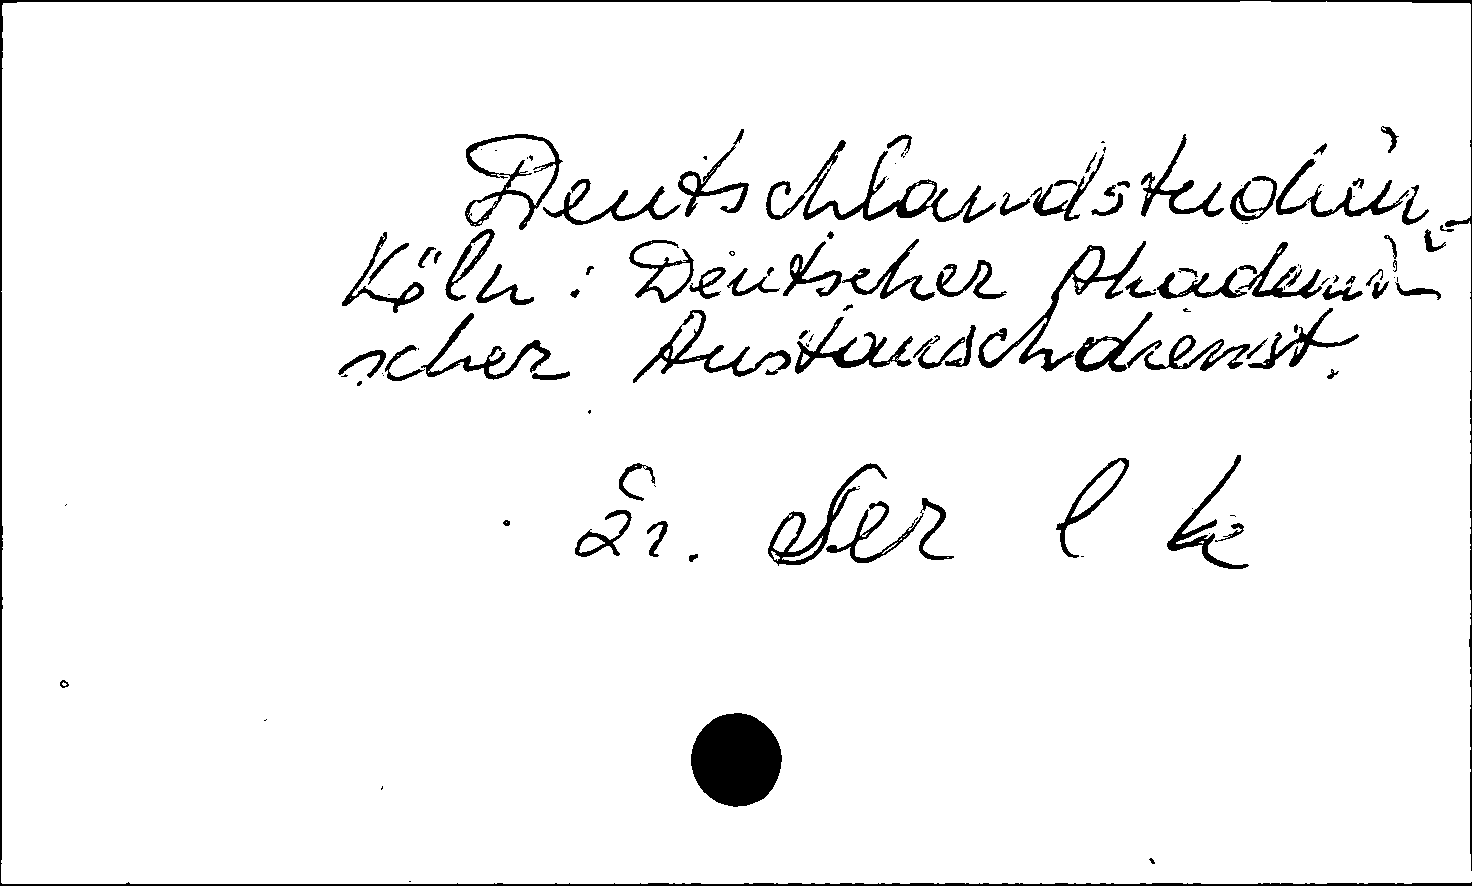 Deutschlandstudien.
Köln : Deutscher Akademi
scher Austauschdienst.
Ser l